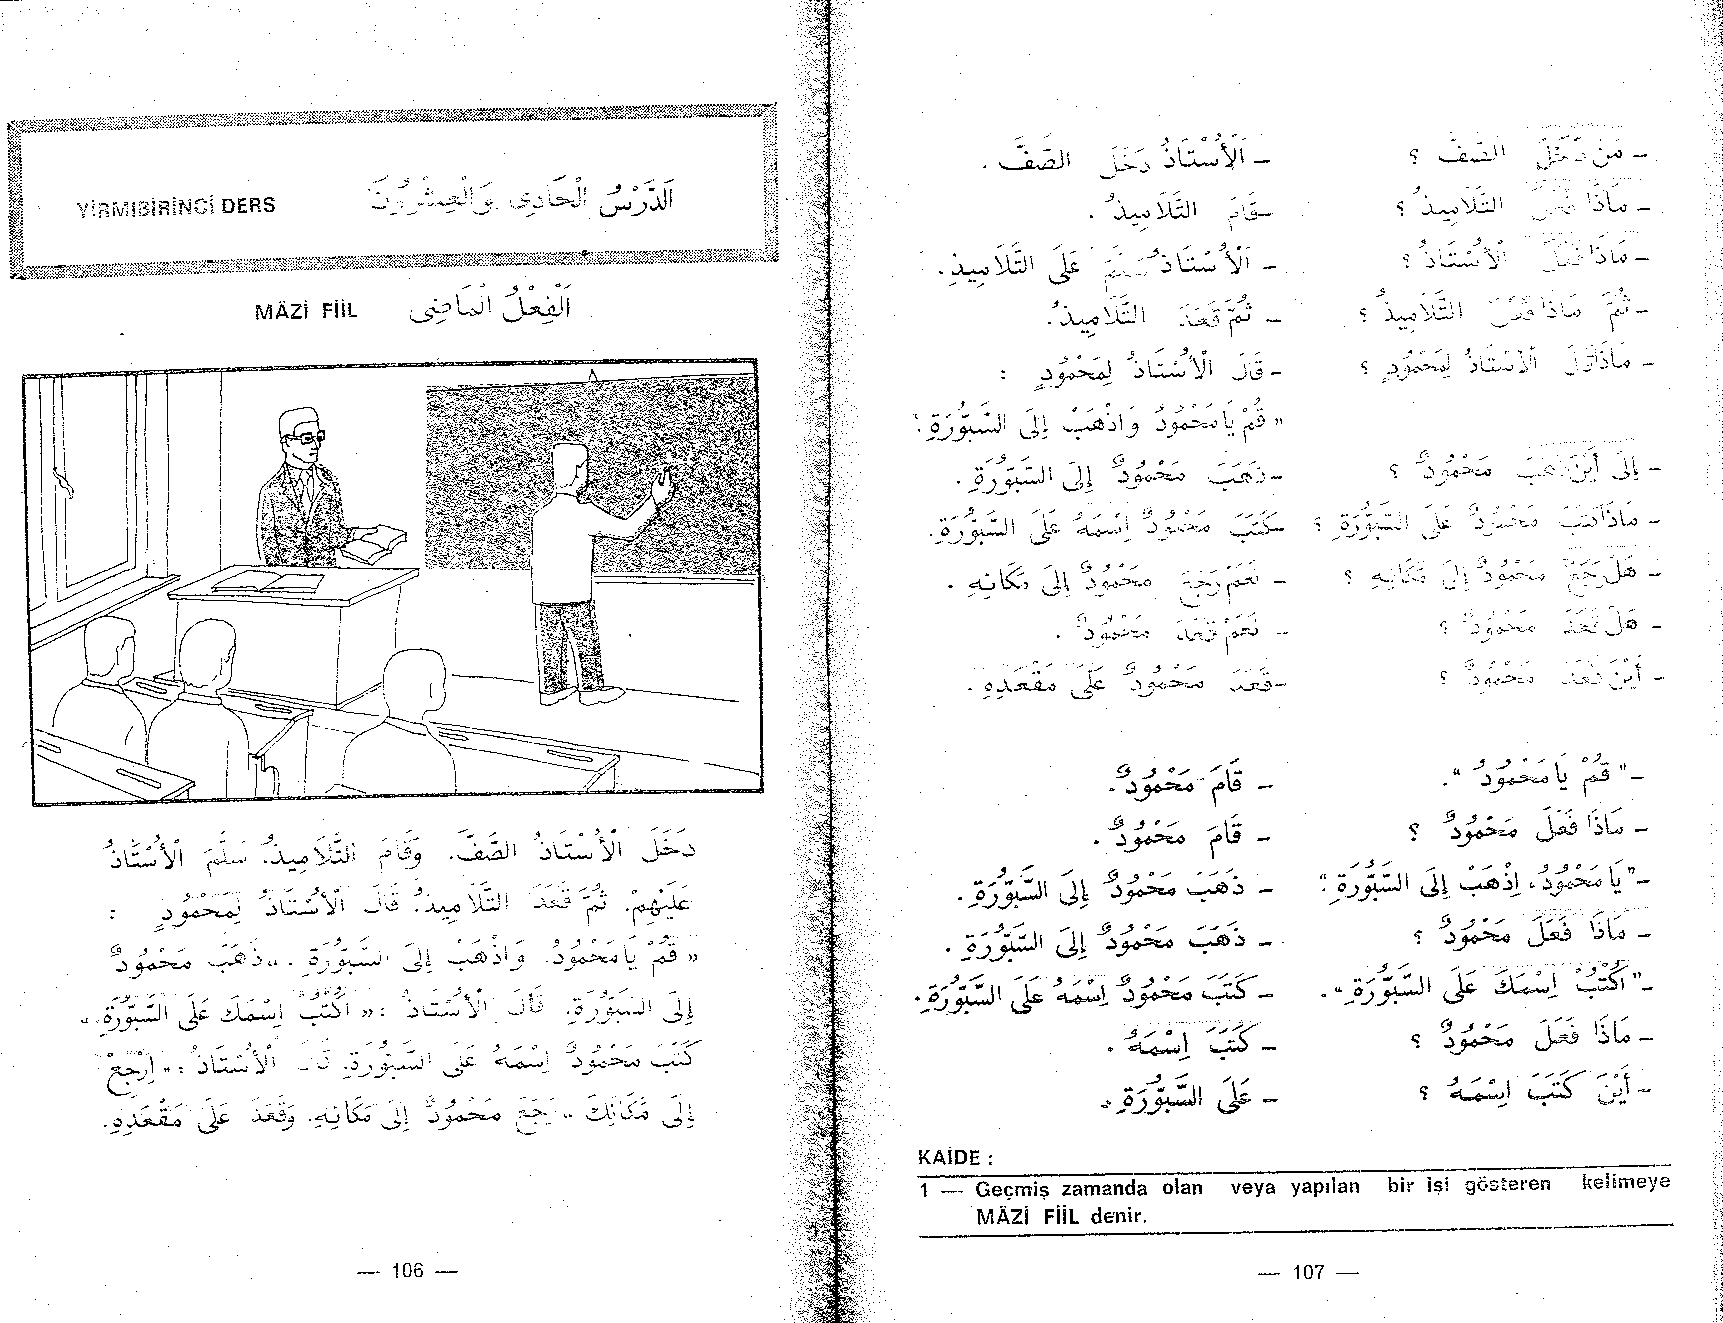 YİRMİBİRİNCİ DERS اَلدَّرْسُ الْحَادِى وَالْعِشْرُونَ
MÂZİ FİİL اَلْفِعْلُ الْمَاضِى
دَخَلَ الْأُسْتَاذُ الصَّفَّ. وَقَامَ التَّلَامِيذُ. سَلَّمَ الْأُسْتَاذُ
عَلَيْهِمْ. ثُمَّ قَعَدَ التَّلَامِيذُ. قَالَ الْأُسْتَاذُ لِمَحْمُودٍ :
« قُمْ يَا مَحْمُودُ. وَاذْهَبْ إِلَى السَّبُّورَةِ . » ذَهَبَ مَحْمُودٌ
إِلَى السَّبُّورَةِ. قَالَ الْأُسْتَاذُ : « اُكْتُبْ اِسْمَكَ عَلَى السَّبُّورَةِ. »
كَتَبَ مَحْمُودٌ اِسْمَهُ عَلَى السَّبُّورَةِ. قَالَ الْأُسْتَاذُ : « اِرْجِعْ
إِلَى مَكَانِكَ » رَجَعَ مَحْمُودٌ إِلَى مَكَانِهِ. وَقَعَدَ عَلَى مَقْعَدِهِ.
— 106 —
– مَنْ دَخَلَ الصَّفَّ ؟ – اَلْأُسْتَاذُ دَخَلَ الصَّفَّ .
– مَاذَا فَعَلَ التَّلَامِيذُ ؟ – قَامَ التَّلَامِيذُ .
– مَاذَا فَعَلَ الْأُسْتَاذُ ؟ – اَلْأُسْتَاذُ سَلَّمَ عَلَى التَّلَامِيذِ.
– ثُمَّ مَاذَا فَعَلَ التَّلَامِيذُ ؟ – ثُمَّ قَعَدَ التَّلَامِيذُ.
– مَاذَا قَالَ الْأُسْتَاذُ لِمَحْمُودٍ ؟ – قَالَ الْأُسْتَاذُ لِمَحْمُودٍ :
« قُمْ يَا مَحْمُودُ وَاذْهَبْ إِلَى السَّبُّورَةِ »
– إِلَى أَيْنَ ذَهَبَ مَحْمُودٌ ؟ – ذَهَبَ مَحْمُودٌ إِلَى السَّبُّورَةِ .
– مَاذَا كَتَبَ مَحْمُودٌ عَلَى السَّبُّورَةِ ؟ – كَتَبَ مَحْمُودٌ اِسْمَهُ عَلَى السَّبُّورَةِ.
– هَلْ رَجَعَ مَحْمُودٌ إِلَى مَكَانِهِ ؟ – نَعَمْ رَجَعَ مَحْمُودٌ إِلَى مَكَانِهِ .
– هَلْ قَعَدَ مَحْمُودٌ ؟ – نَعَمْ قَعَدَ مَحْمُودٌ .
– أَيْنَ قَعَدَ مَحْمُودٌ ؟ – قَعَدَ مَحْمُودٌ عَلَى مَقْعَدِهِ .
– " قُمْ يَا مَحْمُودُ ". – قَامَ مَحْمُودٌ.
– مَاذَا فَعَلَ مَحْمُودٌ ؟ – قَامَ مَحْمُودٌ.
– " يَا مَحْمُودُ، اِذْهَبْ إِلَى السَّبُّورَةِ ". – ذَهَبَ مَحْمُودٌ إِلَى السَّبُّورَةِ .
– مَاذَا فَعَلَ مَحْمُودٌ ؟ – ذَهَبَ مَحْمُودٌ إِلَى السَّبُّورَةِ .
– " اُكْتُبْ اِسْمَكَ عَلَى السَّبُّورَةِ ". – كَتَبَ مَحْمُودٌ اِسْمَهُ عَلَى السَّبُّورَةِ.
– مَاذَا فَعَلَ مَحْمُودٌ ؟ – كَتَبَ اِسْمَهُ .
– أَيْنَ كَتَبَ اِسْمَهُ ؟ – عَلَى السَّبُّورَةِ .
KAİDE :
1 — Geçmiş zamanda olan veya yapılan bir işi gösteren kelimeye
MÂZİ FİİL denir.
— 107 —